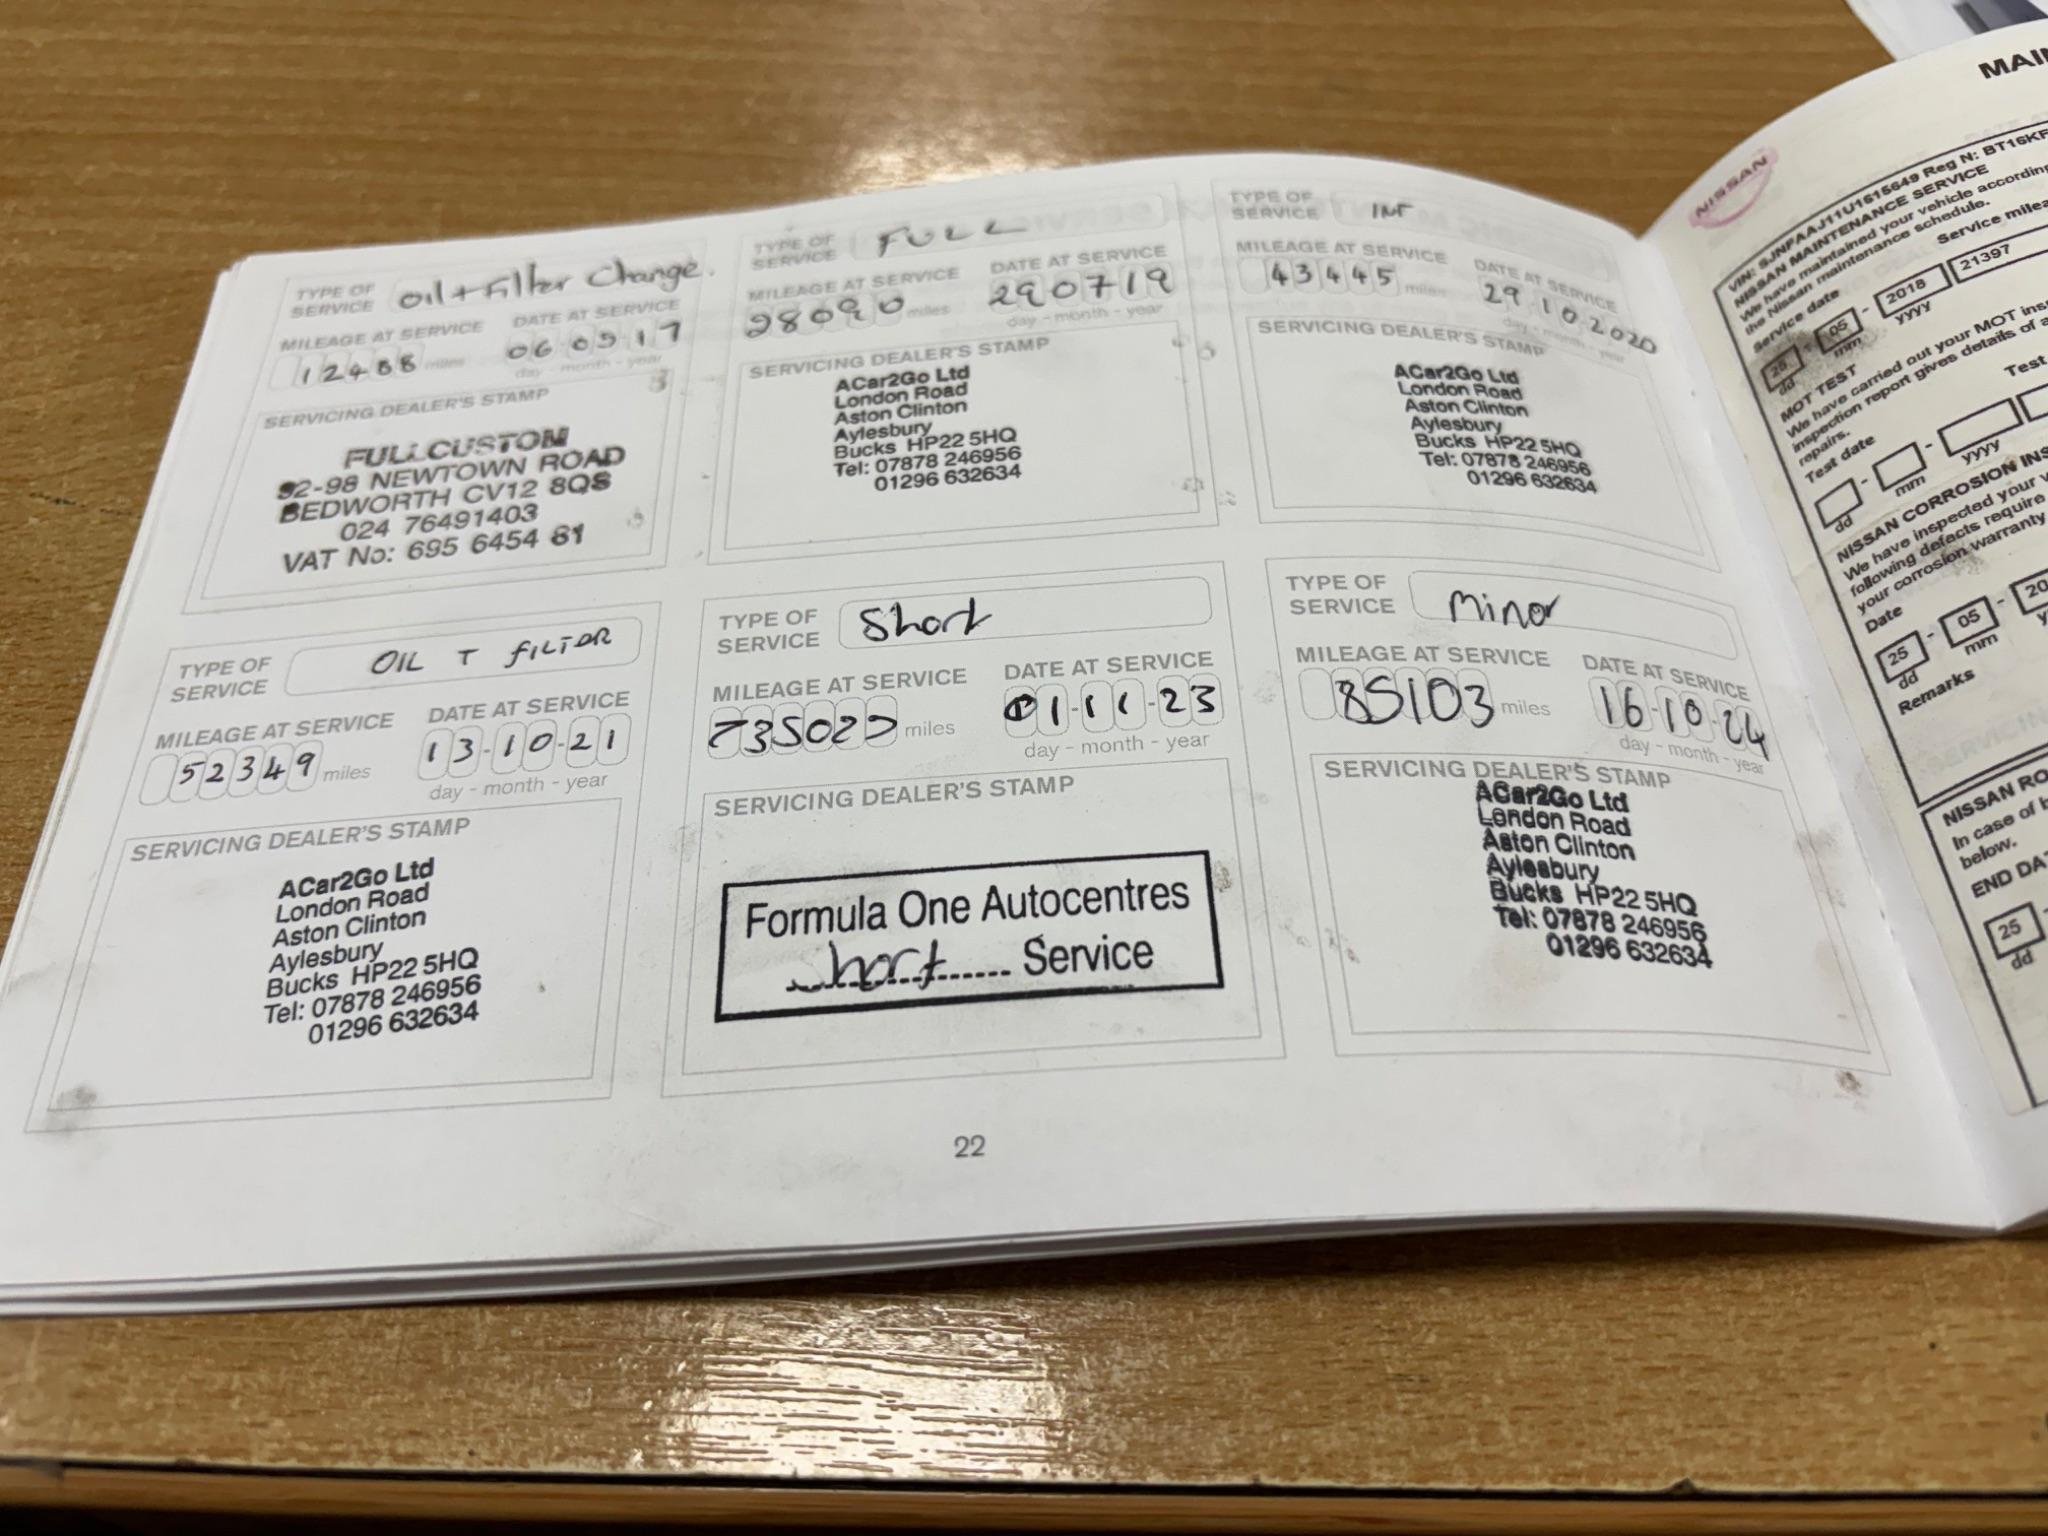 TYPE OF SERVICE Oil + Filter Change.
MILEAGE AT SERVICE DATE AT SERVICE
12488 miles 06 09 17
day - month - year
SERVICING DEALER'S STAMP
FULLCUSTOM
92-98 NEWTOWN ROAD
BEDWORTH CV12 8QS
024 76491403
VAT No: 695 6454 81
TYPE OF SERVICE FULL
MILEAGE AT SERVICE DATE AT SERVICE
28090 miles 290719
day - month - year
SERVICING DEALER'S STAMP
ACar2Go Ltd
London Road
Aston Clinton
Aylesbury
Bucks HP22 5HQ
Tel: 07878 246956
01296 632634
TYPE OF SERVICE INT
MILEAGE AT SERVICE DATE AT SERVICE
43445 miles 29.10.2020
day - month - year
SERVICING DEALER'S STAMP
ACar2Go Ltd
London Road
Aston Clinton
Aylesbury
Bucks HP22 5HQ
Tel: 07878 246956
01296 632634
TYPE OF SERVICE OIL + FILTER
MILEAGE AT SERVICE DATE AT SERVICE
52349 miles 13-10-21
day - month - year
SERVICING DEALER'S STAMP
ACar2Go Ltd
London Road
Aston Clinton
Aylesbury
Bucks HP22 5HQ
Tel: 07878 246956
01296 632634
TYPE OF SERVICE Short
MILEAGE AT SERVICE DATE AT SERVICE
miles 01-11-23
day - month - year
SERVICING DEALER'S STAMP
Formula One Autocentres
short Service
TYPE OF SERVICE Minor
MILEAGE AT SERVICE DATE AT SERVICE
85103 miles 16-10-24
day - month - year
SERVICING DEALER'S STAMP
ACar2Go Ltd
London Road
Aston Clinton
Aylesbury
Bucks HP22 5HQ
Tel: 07878 246956
01296 632634
22
NISSAN
VIN: SJNFAAJ11U1615649 Reg N: BT16KF
NISSAN MAINTENANCE SERVICE
We have maintained your vehicle according
the Nissan maintenance schedule.
Service date Service mileage
25 - 05 - 2018 21397
dd mm yyyy
MOT TEST
We have carried out your MOT
inspection report gives details of
repairs.
Test date Test
dd mm yyyy
NISSAN CORROSION
We have inspected your
following defects require
your corrosion warranty
Date
25 - 05 - 20
dd mm
Remarks
NISSAN
In case of
below.
END
25
dd